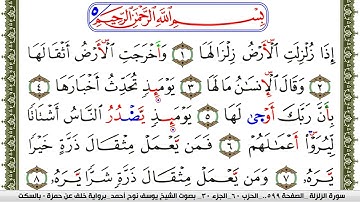 بِسْمِ ٱللَّهِ ٱلرَّحْمَٰنِ ٱلرَّحِيمِ ٥
إِذَا زُلْزِلَتِ ٱلْأَرْضُ زِلْزَالَهَا ١ وَأَخْرَجَتِ ٱلْأَرْضُ أَثْقَالَهَا
٢ وَقَالَ ٱلْإِنسَٰنُ مَا لَهَا ٣ يَوْمَئِذٍ تُحَدِّثُ أَخْبَارَهَا ٤
بِأَنَّ رَبَّكَ أَوْحَىٰ لَهَا ٥ يَوْمَئِذٍ يَصْدُرُ ٱلنَّاسُ أَشْتَاتًا
لِّيُرَوْا۟ أَعْمَٰلَهُمْ ٦ فَمَن يَعْمَلْ مِثْقَالَ ذَرَّةٍ خَيْرًا
يَرَهُۥ ٧ وَمَن يَعْمَلْ مِثْقَالَ ذَرَّةٍ شَرًّا يَرَهُۥ ٨
سورة الزلزلة ..الصفحة ٥٩٩.. الحزب ٦٠ الجزء ٣٠ ..بصوت الشيخ يوسف نوح احمد ..برواية خلف عن حمزة - بالسكت